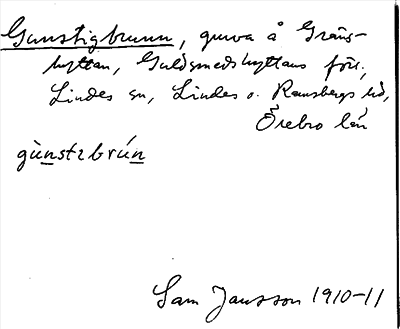 Gunstigbrunn, gruva å Gräns-
hyttan, Guldsmedshyttans förs.,
Lindes sn, Lindes o. Ramsbergs hd,
Örebro län
gùnstɪbrún
Sam Jansson 1910-11